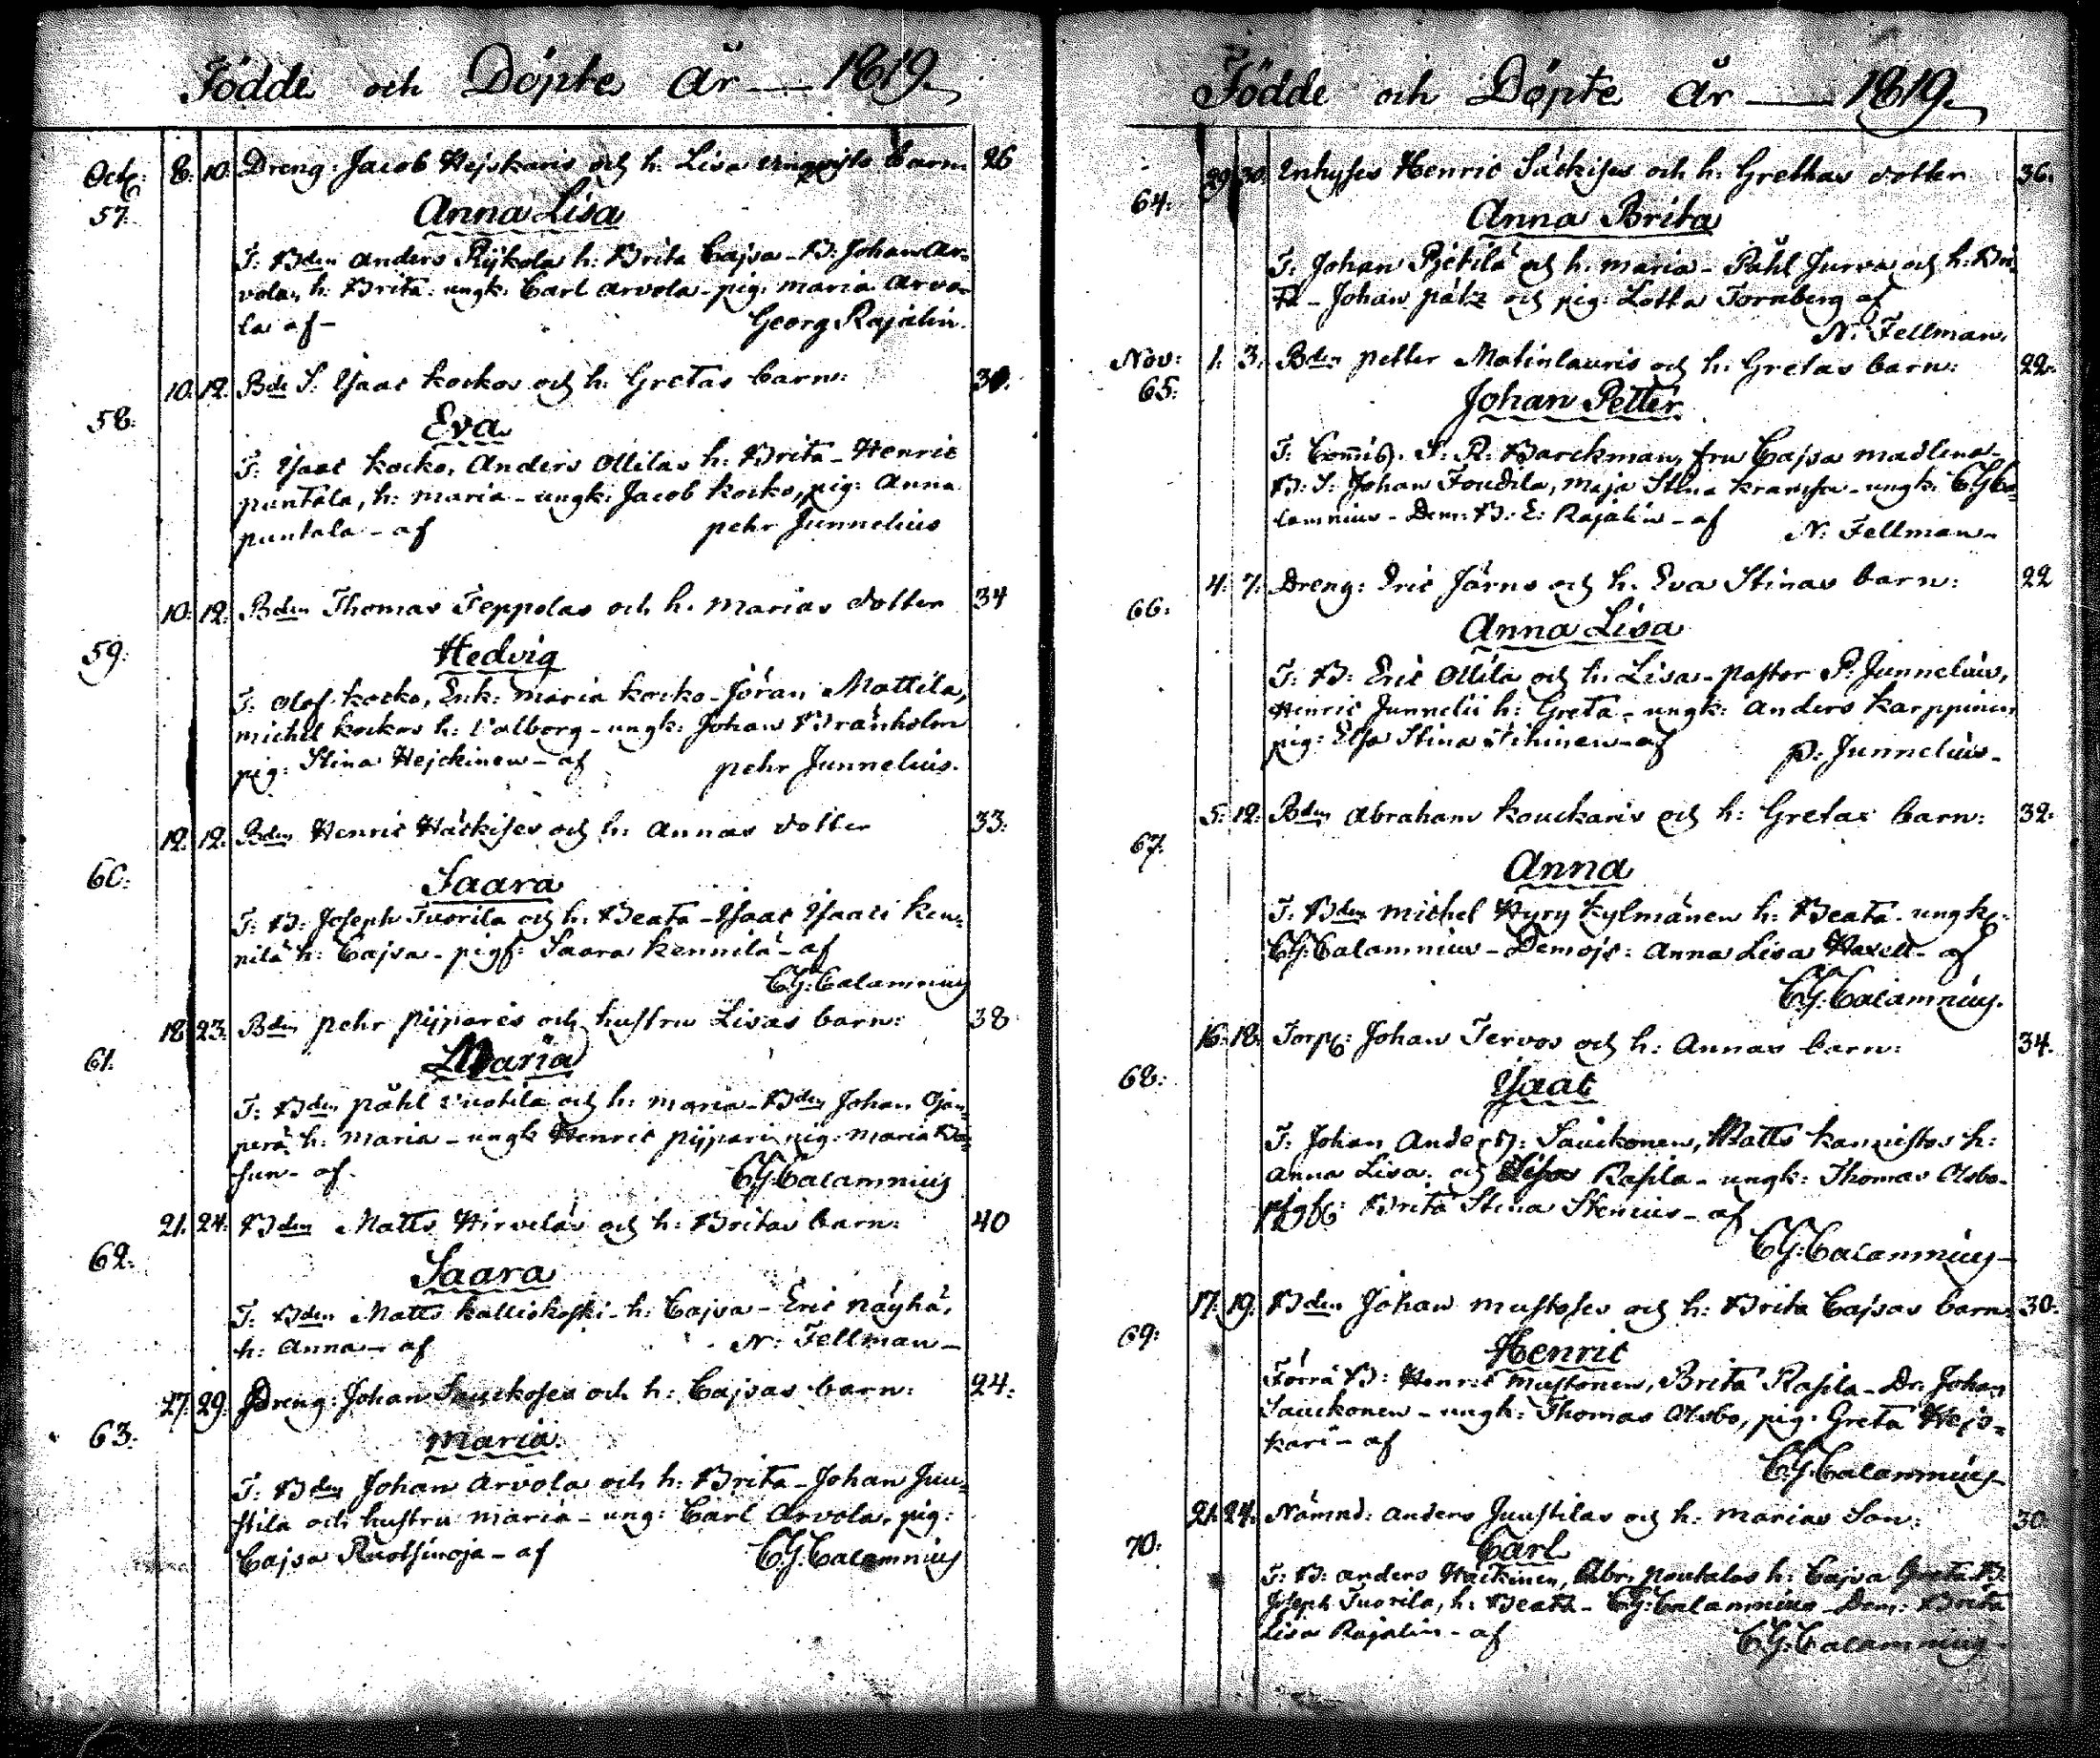 Födde och Döpte år — 1819.
Octb: 8. 10. Dreng: Jacob Hejskaris och h. Lisa barn. 26
57.
Anna Lisa
F: Bden Anders Rÿkola h: Brita Cajsa - B: Johan Ar=
vola, h: Brita: ungk: Carl Arvola - pig: Maria Arvo=
la af - Georg Rajalin.
10. 12. Bde S. Isaac Kockos och h: Gretas barn: 30.
58.
Eva
F: Isaac Kocko, Anders Ollilas h: Brita - Henric
Puntala, h: Maria - ungk: Jacob Kocko, pig: Anna
Puntala - af Pehr Junnelius
10. 12. Bden Thomas Teppolas och h. Marias dotter 34
59.
Hedvig
F: Olof Kocko, Enk: Maria Kocko - Jöran Mattila,
Michel Kockos h: Valborg - ungk: Johan Bränholm
pig: Stina Hejckinen - af Pehr Junnelius.
12. 12. Bden Henric Häckises och h: Annas dotter 33.
60.
Saara
F: B: Joseph Tuorila och h: Beata - Isaac Isacs Ken=
nilä h: Cajsa - pigf: Saara Kennilä - af
C.G: Calamnius
18. 23. Bden Pehr Pijparis och hustru Lisas barn: 38
61.
Maria
F: Bden Påhl Vuotila och h: Maria - Bden Johan Ojan=
perä h: Maria - ungk Henric Pijpari pig: Maria
sun - af C.G: Calamnius
21. 24. Bden Matts Hirveläs och h: Britas barn: 40
62.
Saara
F: Bden Matts Kalliokoski - h: Cajsa - Eric Näyhä,
h: Anna - af N: Fellman -
27. 29. Dreng: Johan Sauckoses och h: Cajsas barn: 24.
63.
Maria.
F: Bden Johan Arvola och h: Brita - Johan Juu=
stila och hustru Maria - ung: Carl Arvola, pig:
Cajsa Ruotsinoja - af C.G: Calamnius
Födde och Döpte år — 1819.
29. 30. Inhyses Henric Säckises och h: Grethas dotter 36.
64.
Anna Brita
F: Johan Pjetilä och h: Maria - Påhl Jurva och h: Bri=
ta - Johan Pätz och pig: Lotta Tornberg af
N: Fellman.
Nov: 1. 3. Bden Petter Matinlauris och h: Gretas barn: 22.
65.
Johan Petter
F: Com̄iss. S: R: Barckman, fru Cajsa Madlena -
B: S: Johan Foudila, Maja Stina - ungk: C.G Ca=
lamnius - Dem: B: E: Rajalin - af N: Fellman -
4. 7. Dreng: Eric Järns och h. Eva Stinas barn: 22
66.
Anna Lisa
F: B: Eric Ollila och h. Lisa - Pastor P: Junnelius,
Henric Junnelii h: Greta - ungk: Anders Karppinen
pig: Elsa Stina Tihinen - af P: Junnelius -
5. 12. Bden Abraham Kouckaris och h: Gretas barn: 32.
67.
Anna
F: Bden Michel Hyry Kylmänen h: Beata - ungk:
C.G: Calamnius - Demois: Anna Lisa Haxell - af
C.G: Calamnius.
16. 18. Torp: Johan Tervos och h: Annas barn: 34.
68.
Isaac
F: Johan Anders: Sauckonen, Matts Kannistos h:
Anna Lisa och Rasila - ungk: Thomas Olsbo -
pigf: Brita Stina Stenius - af
C.G: Calamnius -
17. 19. Bden Johan Mustoses och h: Brita Cajsas barn: 30.
69.
Henric
Förra B: Henric Mustonen, Brita Rasila - Dr: Johan
Sauckonen - ungk: Thomas Olsbo, pig: Greta Hejs=
kari - af
C.G: Calamnius
21. 24. Nämnd: Anders Juustilas och h: Marias Son: 30.
70.
Carl
F: B: Anders Häckinen, Abr: Poutalas h: Cajsa Greta B:
Joseph Tuorila, h: Beata - C.G: Calamnius - Dem: Brita
Lisa Rajalin - af
C.G: Calamnius